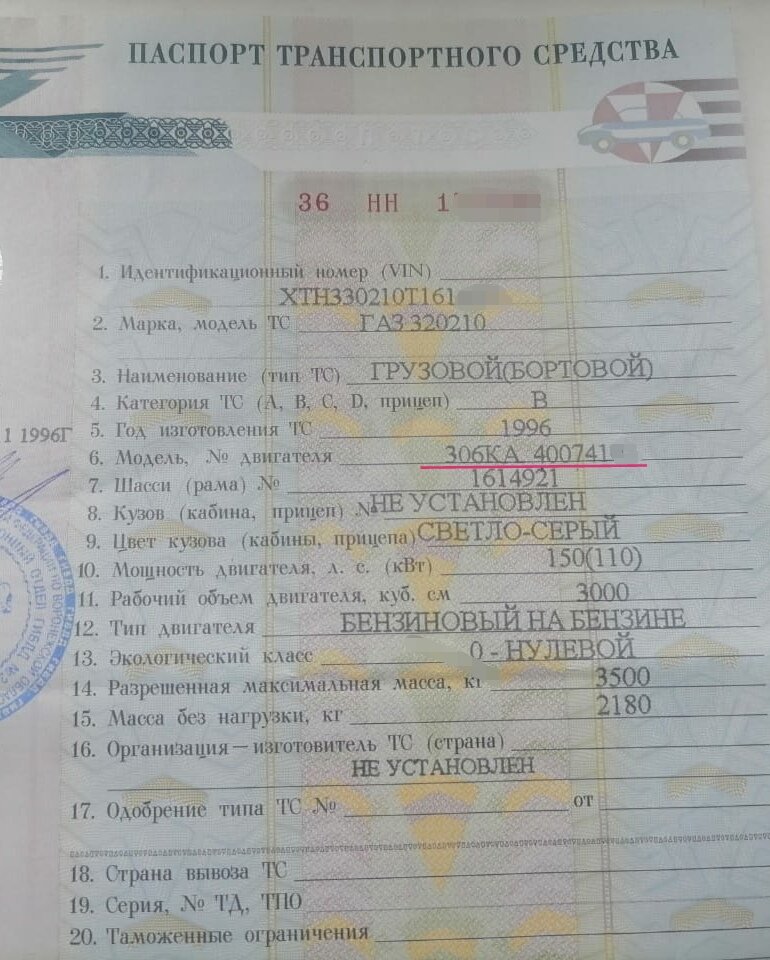 ПАСПОРТ ТРАНСПОРТНОГО СРЕДСТВА
36 НН 1
1. Идентификационный номер (VIN)
ХТН330210Т161
2. Марка, модель ТС ГАЗ 320210
3. Наименование (тип ТС) ГРУЗОВОЙ(БОРТОВОЙ)
4. Категория ТС (А, В, С, D, прицеп) В
1 1996Г
5. Год изготовления ТС 1996
6. Модель, № двигателя 306КА 400741
7. Шасси (рама) № 1614921
8. Кузов (кабина, прицеп) № НЕ УСТАНОВЛЕН
9. Цвет кузова (кабины, прицепа) СВЕТЛО-СЕРЫЙ
10. Мощность двигателя, л. с. (кВт) 150(110)
11. Рабочий объем двигателя, куб. см 3000
12. Тип двигателя БЕНЗИНОВЫЙ НА БЕНЗИНЕ
13. Экологический класс 0 - НУЛЕВОЙ
14. Разрешенная максимальная масса, кг 3500
15. Масса без нагрузки, кг 2180
16. Организация—изготовитель ТС (страна)
НЕ УСТАНОВЛЕН
17. Одобрение типа ТС № от
18. Страна вывоза ТС
19. Серия, № ТД, ТПО
20. Таможенные ограничения